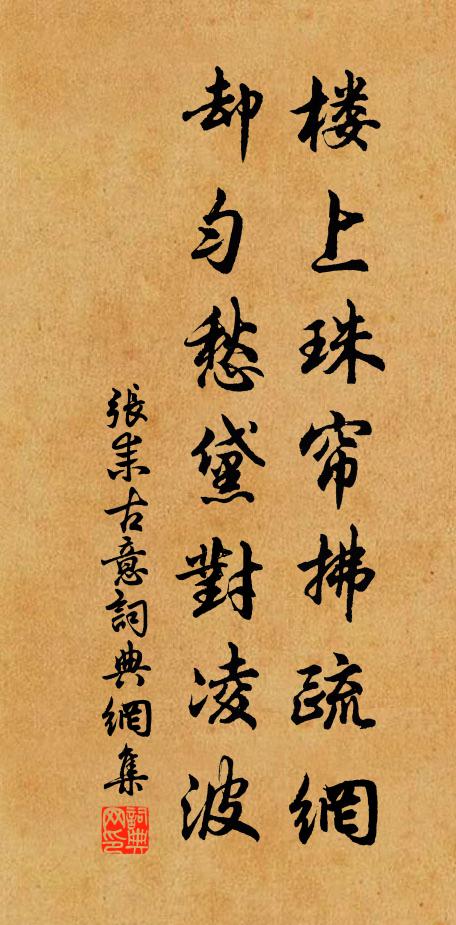 楼上珠帘拂疏網
却匀愁黛對凌波
張耒古意詞典網集
詞典網印